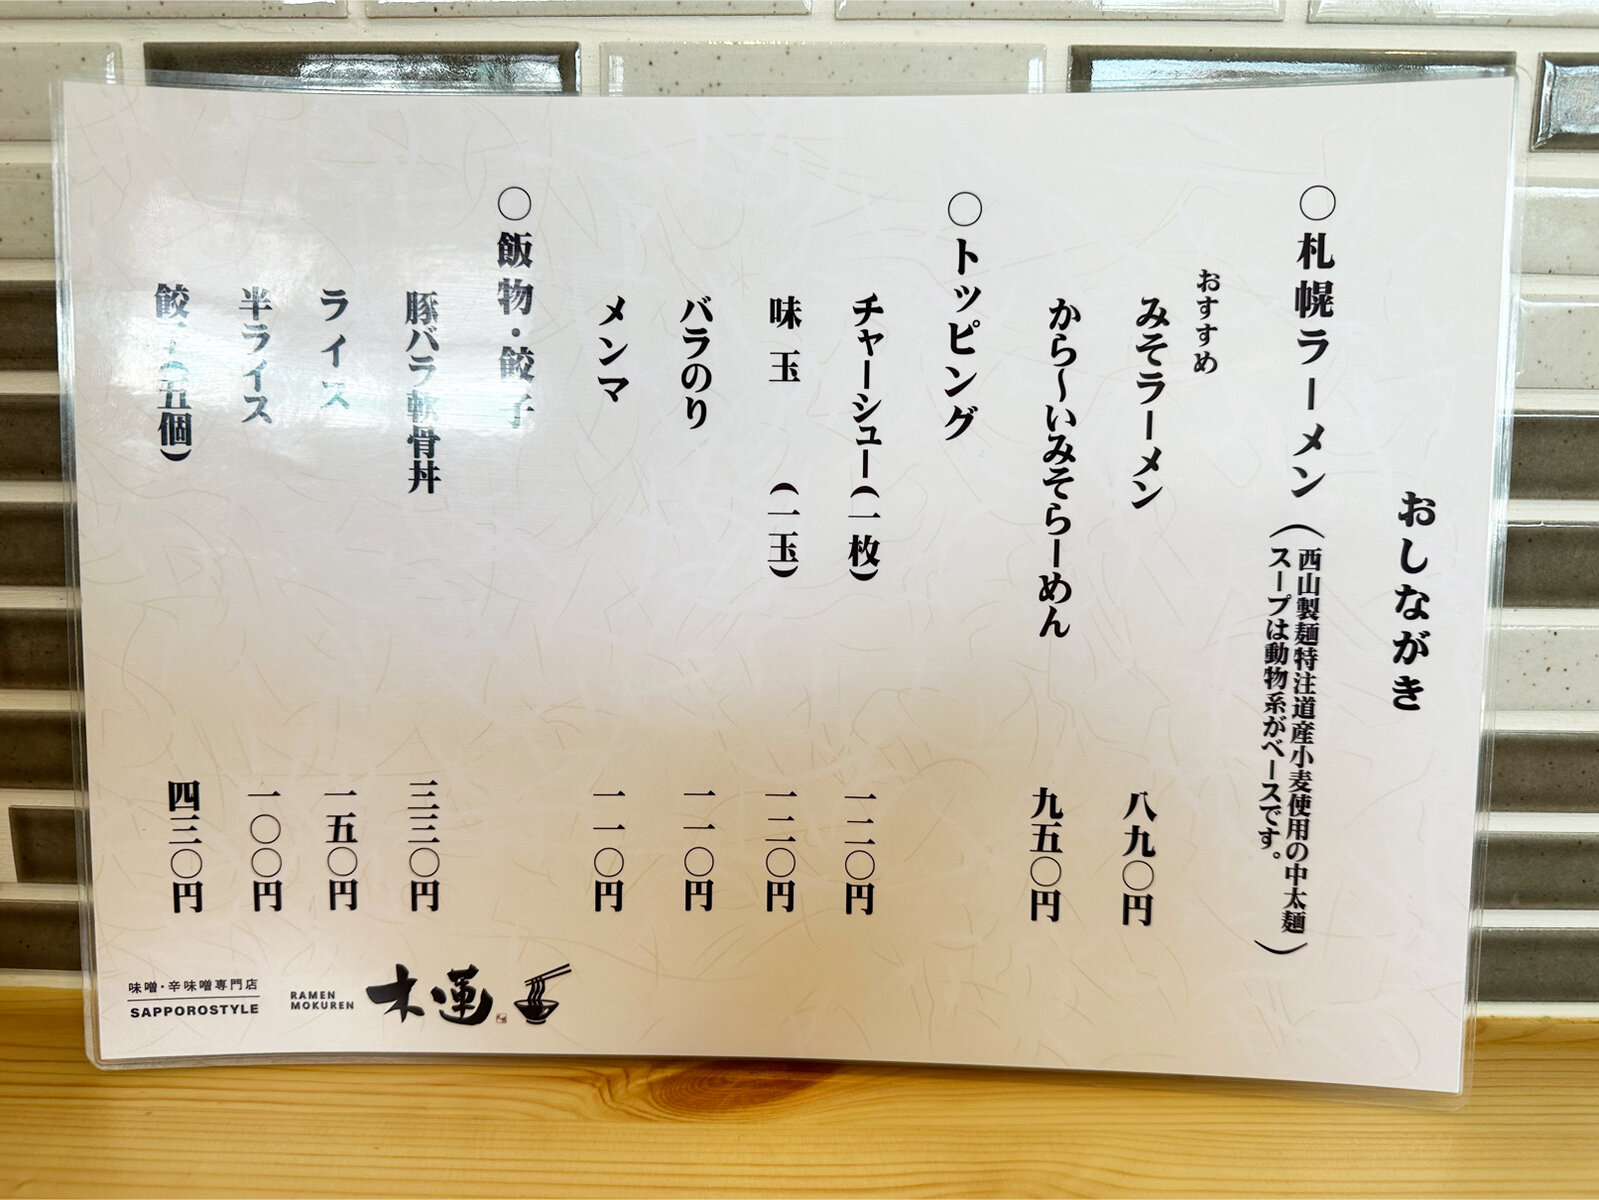 おしながき
〇札幌ラーメン(西山製麺特注道産小麦使用の中太麺
スープは動物系がベースです。)
おすすめ
みそラーメン 八九〇円
から〜いみそらーめん 九五〇円
〇トッピング
チャーシュー(一枚) 一二〇円
味玉 (一玉) 一二〇円
バラのり 一一〇円
メンマ 一一〇円
〇飯物・餃子
豚バラ軟骨丼 三三〇円
ライス 一五〇円
半ライス 一〇〇円
餃子(五個) 四三〇円
味噌・辛味噌専門店
SAPPOROSTYLE
RAMEN
MOKUREN
木蓮